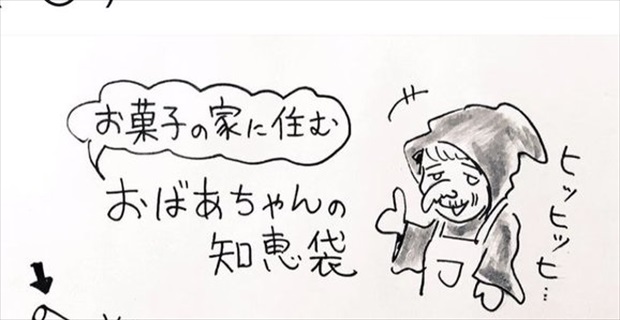 お菓子の家に住む
おばあちゃんの
知恵袋
ヒッヒッヒ…